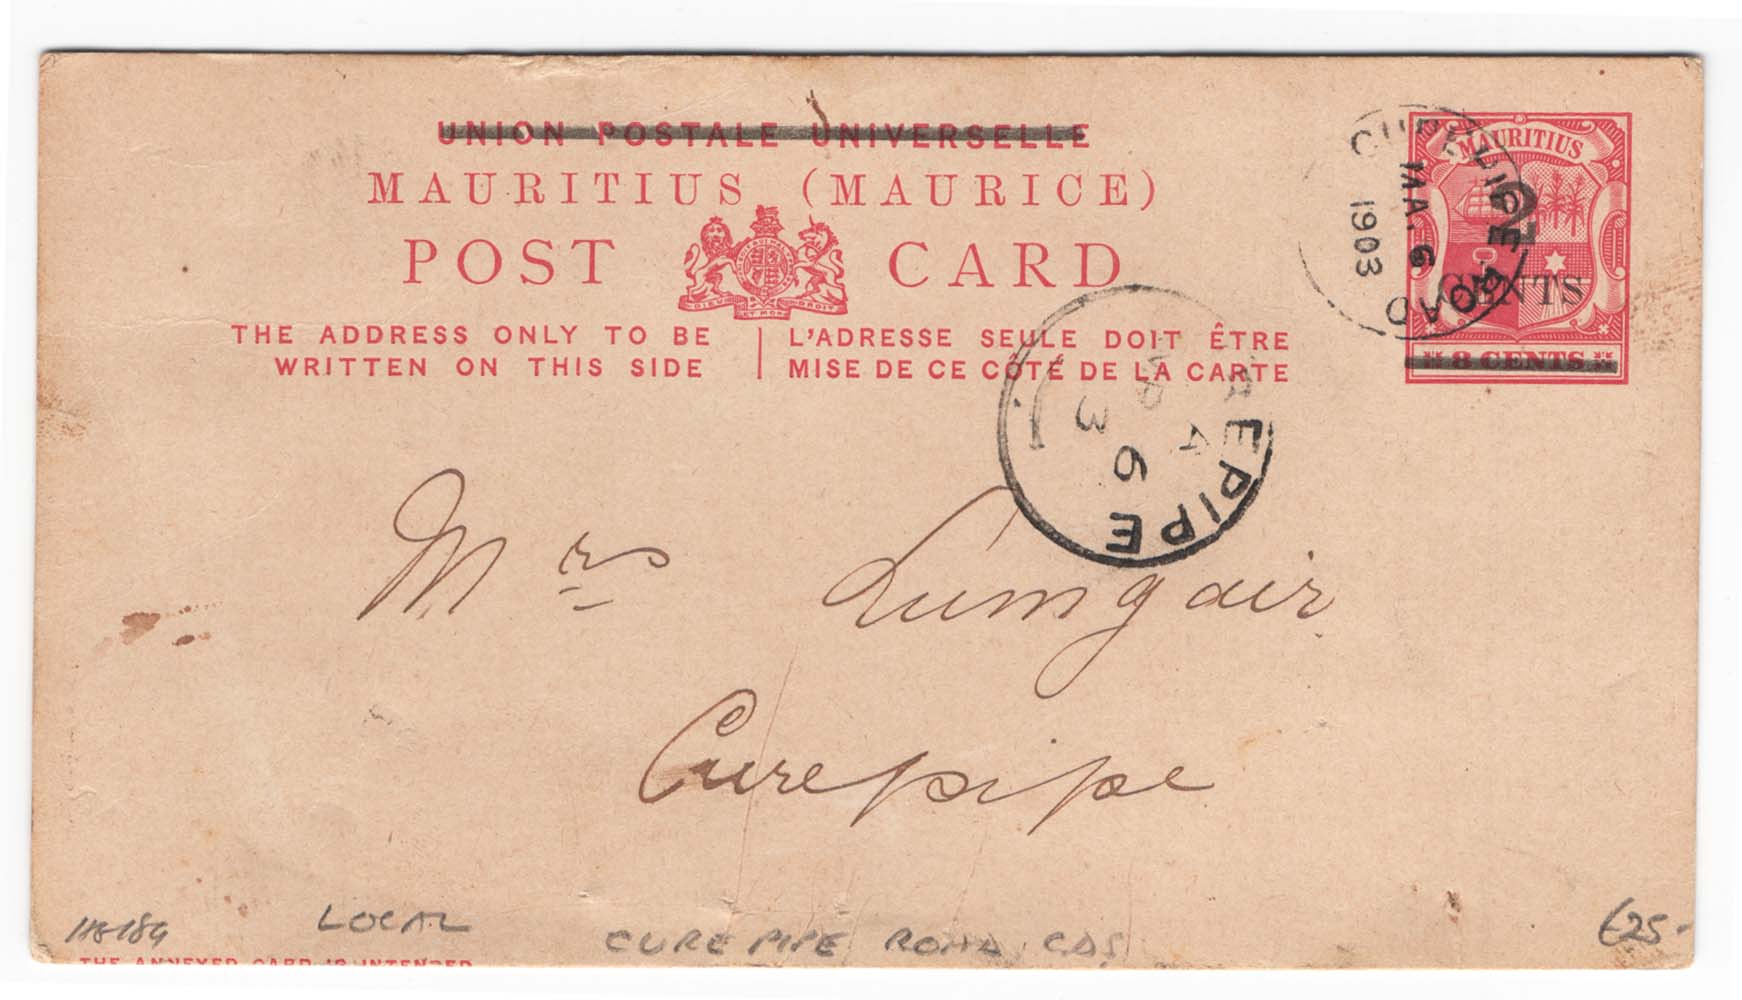 UNION POSTALE UNIVERSELLE
MAURITIUS (MAURICE)
POST CARD
DIEU ET MON DROIT
THE ADDRESS ONLY TO BE
WRITTEN ON THIS SIDE
L'ADRESSE SEULE DOIT ÊTRE
MISE DE CE CÔTÉ DE LA CARTE
MAURITIUS
2
CENTS
8 CENTS
CUREPIPE ROAD
6
1903
REPIPE
A
6
3
Mrs
Curepipe
LOCAL
CUREPIPE ROAD CDS
€25-
THE ANNEXED CARD IS INTENDED